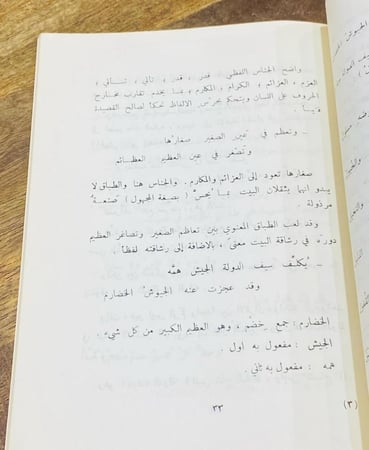 واضح الجناس اللفظي قدر ، قدر ، تأتي ، تأتي ،
العزم ، العزائم ، الكرام ، المكارم ، مما يخدم تقارب مخارج
الحروف على اللسان ويتحكم بجرس الالفاظ تحكما لصالح القصيدة
فنيا .
ـ وتعظم في عين الصغير صغارها
وتصغر في عين العظيم العظائم
صغارها تعود إلى العزائم والمكارم . والجناس هنا والطباق لا
يبدو انهما يثقلان البيت بما يُحسّ ( بصيغة المجهول ) صنعةً
مرذولة .
وقد لعب الطباق المعنوي بين تعاظم الصغير وتصاغر العظيم
دوره في رشاقة البيت معنى ، بالاضافة إلى رشاقته لفظاً .
ـ يُكلّف سيف الدولة الجيش همّه
وقد عجزت عنه الجيوش الخضارم
الخضارم : جمع خضم ، وهو العظيم الكبير من كل شيء .
الجيش : مفعول به اول .
همه : مفعول به ثاني .
٣٣
(٣)